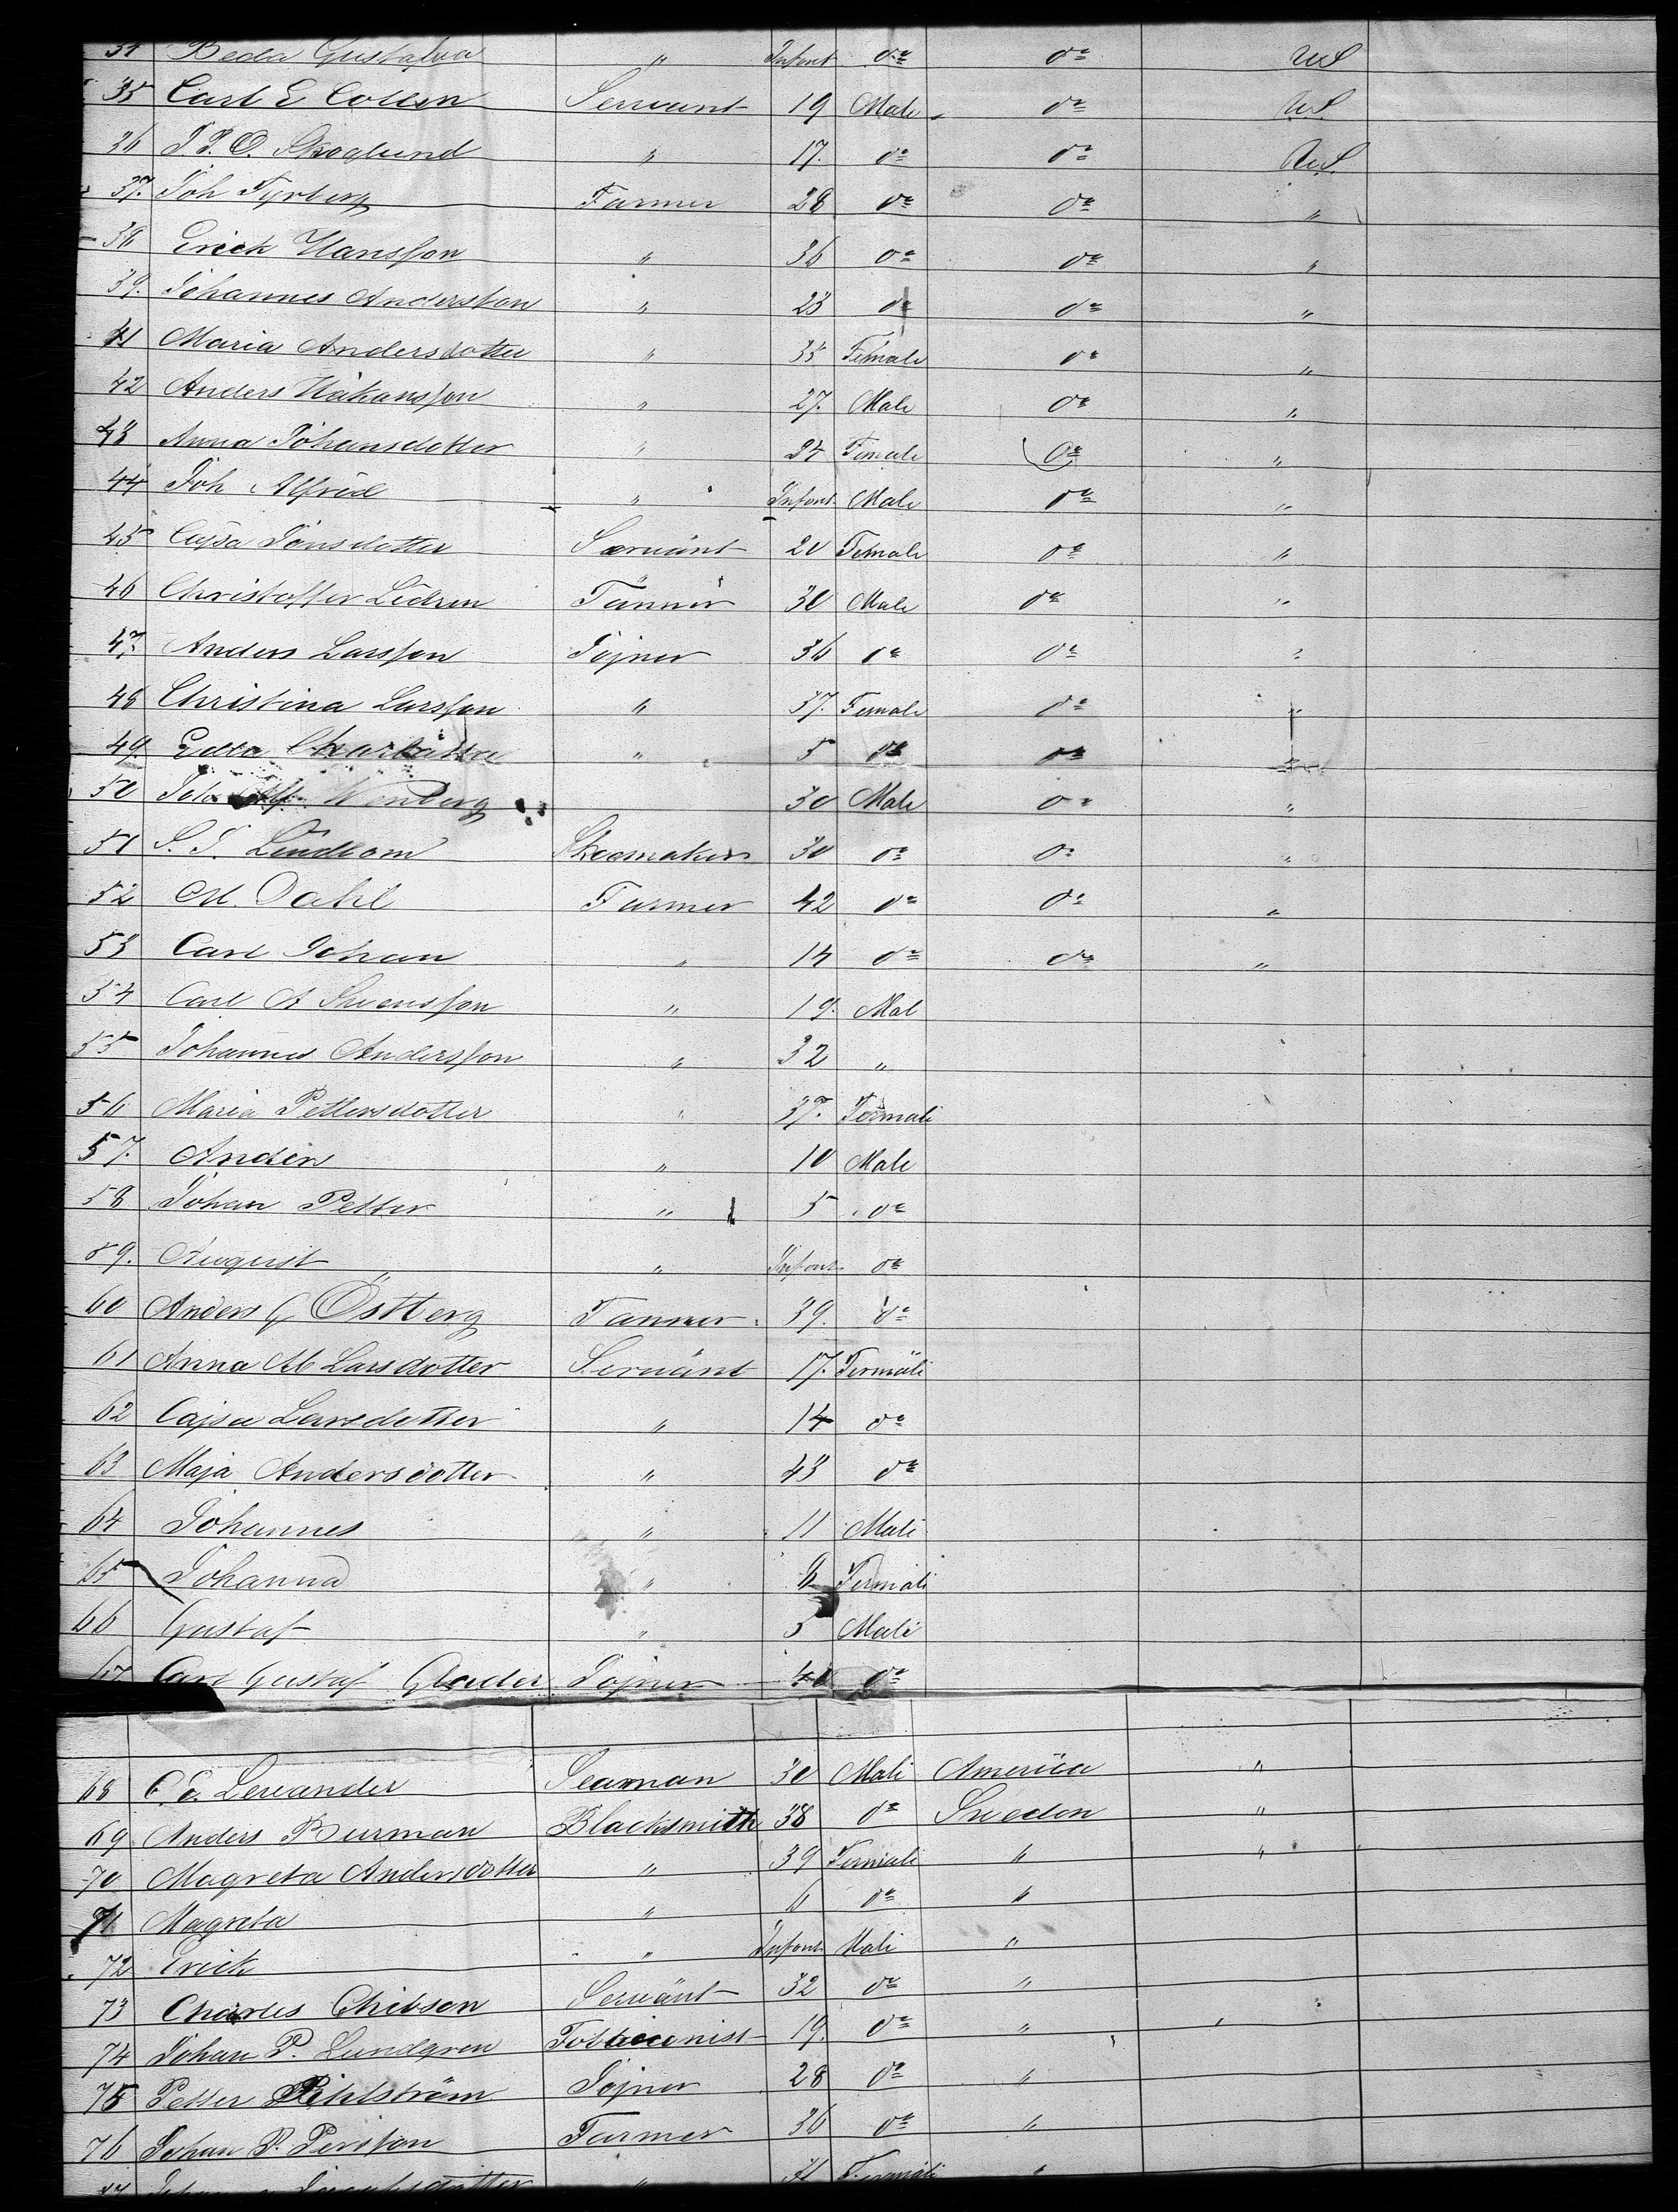 34 Beda Gustafva " Infant do do U.S
35 Carl E Collin Servant 19 Male do U.S.
36 J. P. O. Skoglund " 17. do do U.S.
37. Joh Tyrberg Farmer 28 do do "
38 Erick Hansson " 36 do do "
39. Johannes Andersson " 23 do do "
41 Maria Andersdotter " 35 Female do "
42 Anders Håkansson " 27. Male do "
43 Anna Johansdotter " 24 Female do "
44 Joh Alfred " Infant Male do "
45 Cajsa Jonsdotter Servant 20 Female do "
46 Christoffer Lidren Tanner 30 Male do "
47. Anders Larsson Jojner 36 do do "
48 Christina Larsson " 37. Female do "
49. Charlotta " 5 do do
50 Wenberg 30 Male do "
51 S. J. Lindbom Shoemaker 30 do do "
52 M. Dahl Farmer 42 do do "
53 Carl Johan " 14 do do "
54 Carl A Svensson " 19. Mal
55 Johannes Andersson " 32 "
56 Maria Pettersdotter " 37. Femali
57. Anders " 10 Male
58 Johan Petter " 5 do
59. August " Infant do
60 Anders G Östberg Tanner 39. do
61 Anna M Larsdotter Servant 17. Femäli
62 Cajsa Larsdotter " 14 do
63 Maja Andersdotter " 43 do
64 Johannes " 11 Mali
65 Johanna " Femali
66 Gustaf " 5 Mali
67 Carl Gustaf Glader Jojner 40 do
68 C. E. Levander Seaman 30 Mali America "
69 Anders Burman Blacksmith 38 do Sweden "
70 Magreta Andersdotter " 39 Femali " "
71 Magreta " 6 do "
72 Erick " Infant Mali "
73 Charles Chibson Servant 32 do "
74 Johan P. Lundgren Tobbaconist 19. do " "
75 Petter Pihlström Jojner 28 do "
76 Johan P. Persson Farmer 36 do "
77 " 31 Femali "